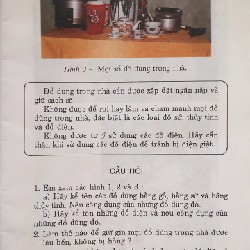 Hình 3 – Một số đồ dùng trong nhà.
Đồ dùng trong nhà cần được xếp đặt ngăn nắp và
giữ sạch sẽ.
Không được để rơi hay làm va chạm mạnh mọi đồ
dùng trong nhà, đặc biệt là các loại đồ sứ, thủy
tinh và đồ điện.
Không được tự ý sử dụng các đồ điện. Hãy cẩn
thận khi sử dụng các đồ điện để tránh bị điện giật.
CÂU HỎI
1. Em xem các hình 1, 2 và 3.
a) Hãy kể tên các đồ dùng bằng gỗ, bằng sứ và bằng
thủy tinh. Nêu công dụng của những đồ dùng đó.
b) Hãy kể tên những đồ điện và nêu công dụng của
những đồ dùng đó.
2. Làm thế nào để giữ gìn mọi đồ dùng trong nhà được
lâu bền, không bị hỏng ?